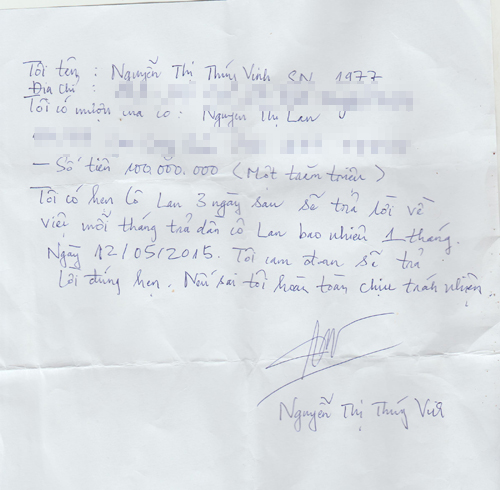 Tôi tên : Nguyễn Thị Thúy Vinh SN 1977
Địa chỉ :
Tôi có mượn của cô : Nguyễn Thị Lan
– Số tiền 100.000.000 ( Một trăm triệu )
Tôi có hẹn Cô Lan 3 ngày sau sẽ trả lời về
việc mỗi tháng trả dần cô Lan bao nhiêu 1 tháng.
Ngày 12/05/2015. Tôi cam đoan sẽ trả
lời đúng hẹn. Nếu sai tôi hoàn toàn chịu trách nhiệm.
Nguyễn Thị Thúy